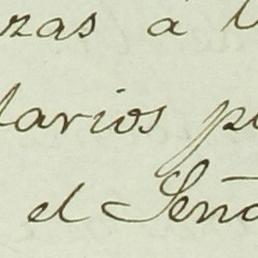 zas á l
tarios p
el Seño